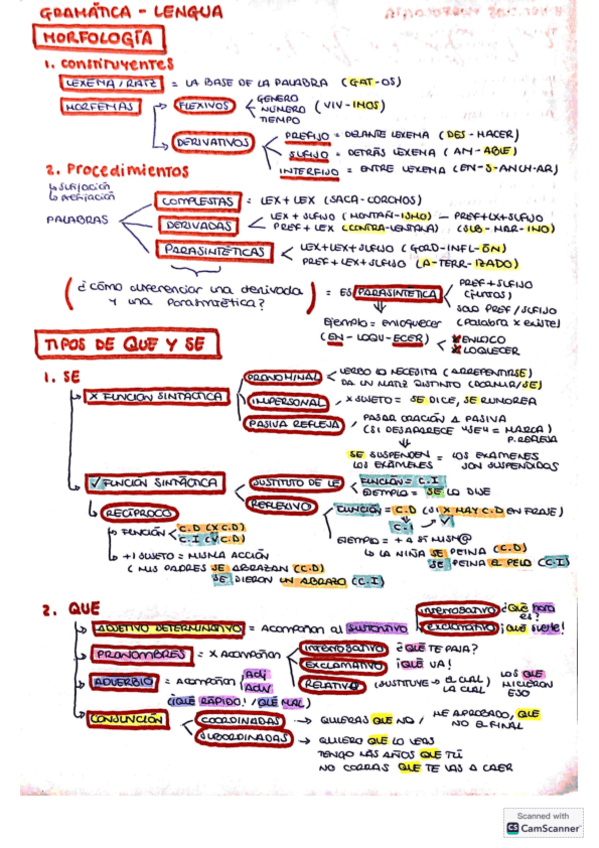 GRAMÁTICA - LENGUA
MORFOLOGÍA
1. Constituyentes
LEXEMA / RAÍZ = LA BASE DE LA PALABRA (GAT-OS)
MORFEMAS
FLEXIVOS
GÉNERO
NÚMERO
TIEMPO
(VIV-IMOS)
DERIVATIVOS
PREFIJO = DELANTE LEXEMA (DES-HACER)
SUFIJO = DETRÁS LEXEMA (AM-ABLE)
INTERFIJO = ENTRE LEXEMA (EN-S-ANCH-AR)
2. Procedimientos
↳ Sufijación
↳ Prefijación
PALABRAS
COMPUESTAS = LEX + LEX (SACA-CORCHOS)
DERIVADAS
LEX + SUFIJO (MONTAÑ-ISMO) — PREF+LX+SUFIJO
PREF + LEX (CONTRA-VENTANA) (SUB-MAR-INO)
PARASINTÉTICAS
LEX+LEX+SUFIJO (GORD-INFL-ÓN)
PREF + LEX + SUFIJO (A-TERR-IZADO)
(¿cómo diferenciar una derivada
y una Parasintética?)
= ES PARASINTÉTICA
PREF + SUFIJO
(juntos)
SOLO PREF / SUFIJO
(Palabra x existe)
Ejemplo = enloquecer
(EN-LOQU-ECER)
x ENLOCO
x LOQUECER
TIPOS DE QUE Y SE
1. SE
X FUNCIÓN SINTÁCTICA
PRONOMINAL
VERBO LO NECESITA (ARREPENTIRSE)
DA UN MATIZ DISTINTO (DORMIR/SE)
IMPERSONAL, X SUJETO = SE DICE, SE RUMOREA
PASIVA REFLEJA
PASAR ORACIÓN A PASIVA
(SI DESAPARECE "SE" = MARCA)
P. REFLEJA
SE SUSPENDEN = LOS EXÁMENES
LOS EXÁMENES SON SUSPENDIDOS
✓ FUNCIÓN SINTÁCTICA
SUSTITUTO DE LE
FUNCIÓN = C.I
EJEMPLO = SE LO DIJE
REFLEXIVO
FUNCIÓN = C.D (SI X HAY C.D EN FRASE)
C.I ✓
EJEMPLO = + A SÍ MISM@
↳ LA NIÑA SE PEINA (C.D)
SE PEINA EL PELO (C.I)
RECÍPROCO
↳ FUNCIÓN
C.D (X C.D)
C.I (✓ C.D)
↳ +1 SUJETO = MISMA ACCIÓN
(MIS PADRES SE ABRAZAN (C.D)
SE DIERON UN ABRAZO (C.I)
2. QUE
ADJETIVO DETERMINATIVO = Acompañan al SUSTANTIVO
INTERROGATIVO ¿Qué hora es?
EXCLAMATIVO ¡Qué suerte!
PRONOMBRES = X Acompañan
INTERROGATIVO ¿QUÉ TE PASA?
EXCLAMATIVO ¡QUÉ VA!
RELATIVO (SUSTITUYE → EL CUAL
LA CUAL
LOS QUE
HICIERON
ESO
ADVERBIO = Acompañan
Adj
Adv
(¡QUÉ RÁPIDO! / QUÉ MAL)
CONJUNCIÓN
COORDINADAS → QUIERAS QUE NO / HE APROBADO, QUE
NO EL FINAL
SUBORDINADAS → QUIERO QUE LO VEAS
TENGO LAS AÑOS QUE TÚ
NO CORRAS QUE TE VAS A CAER
Scanned with
CS CamScanner